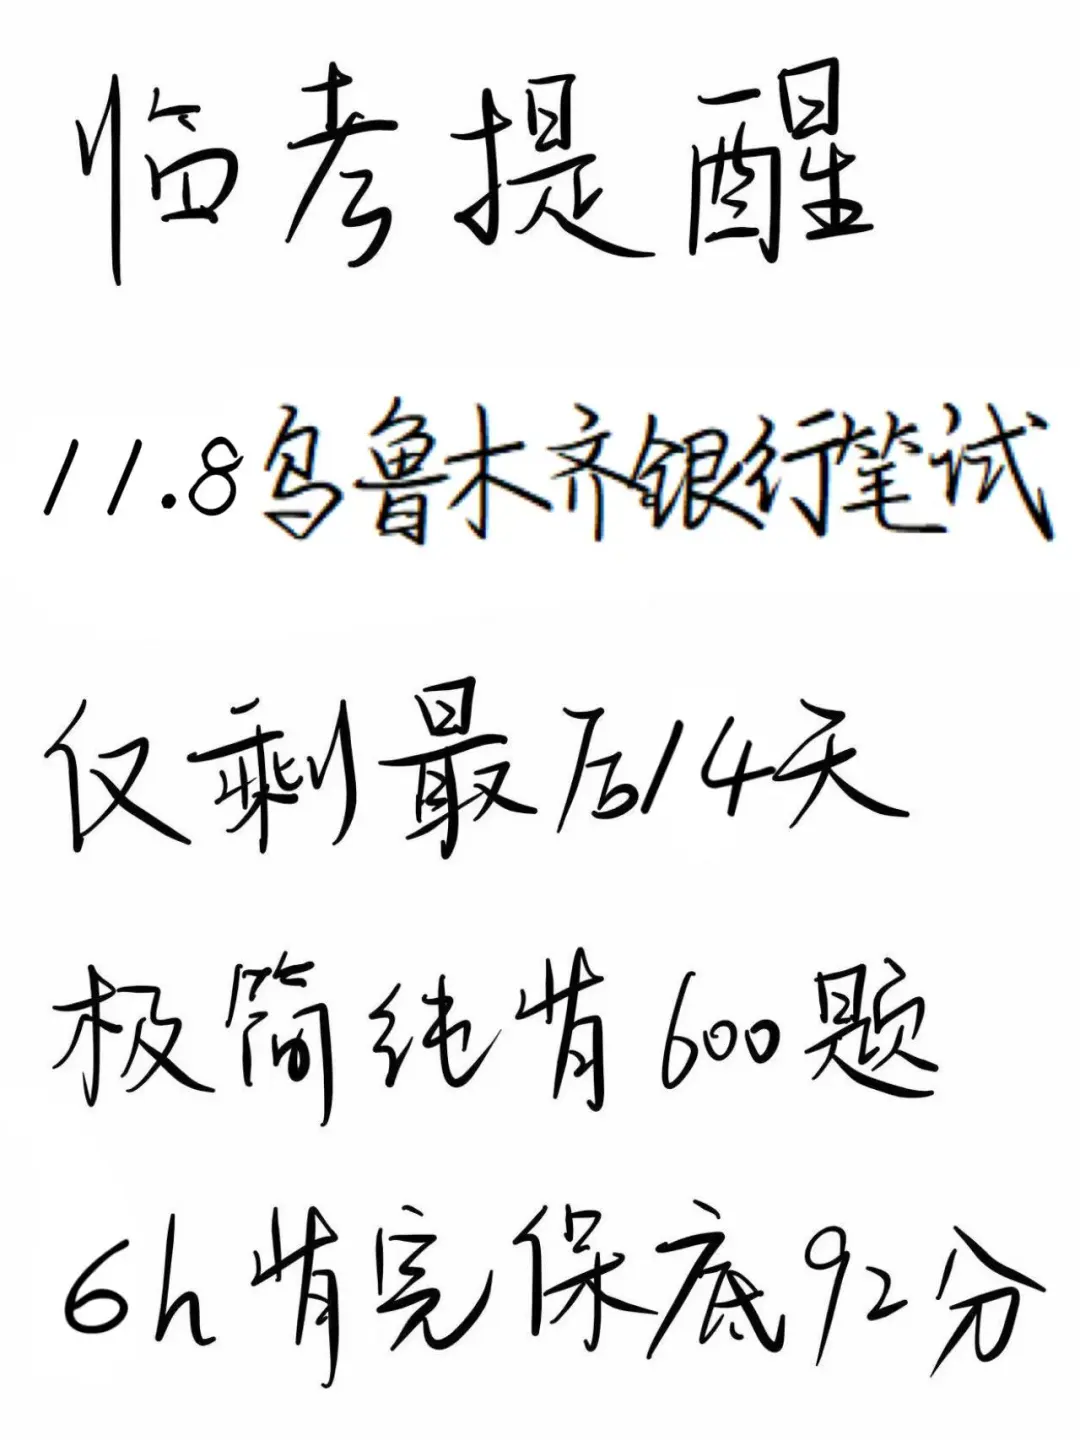 临考提醒
11.8乌鲁木齐银行笔试
仅剩最后14天
极简纯背600题
6h背完保底92分